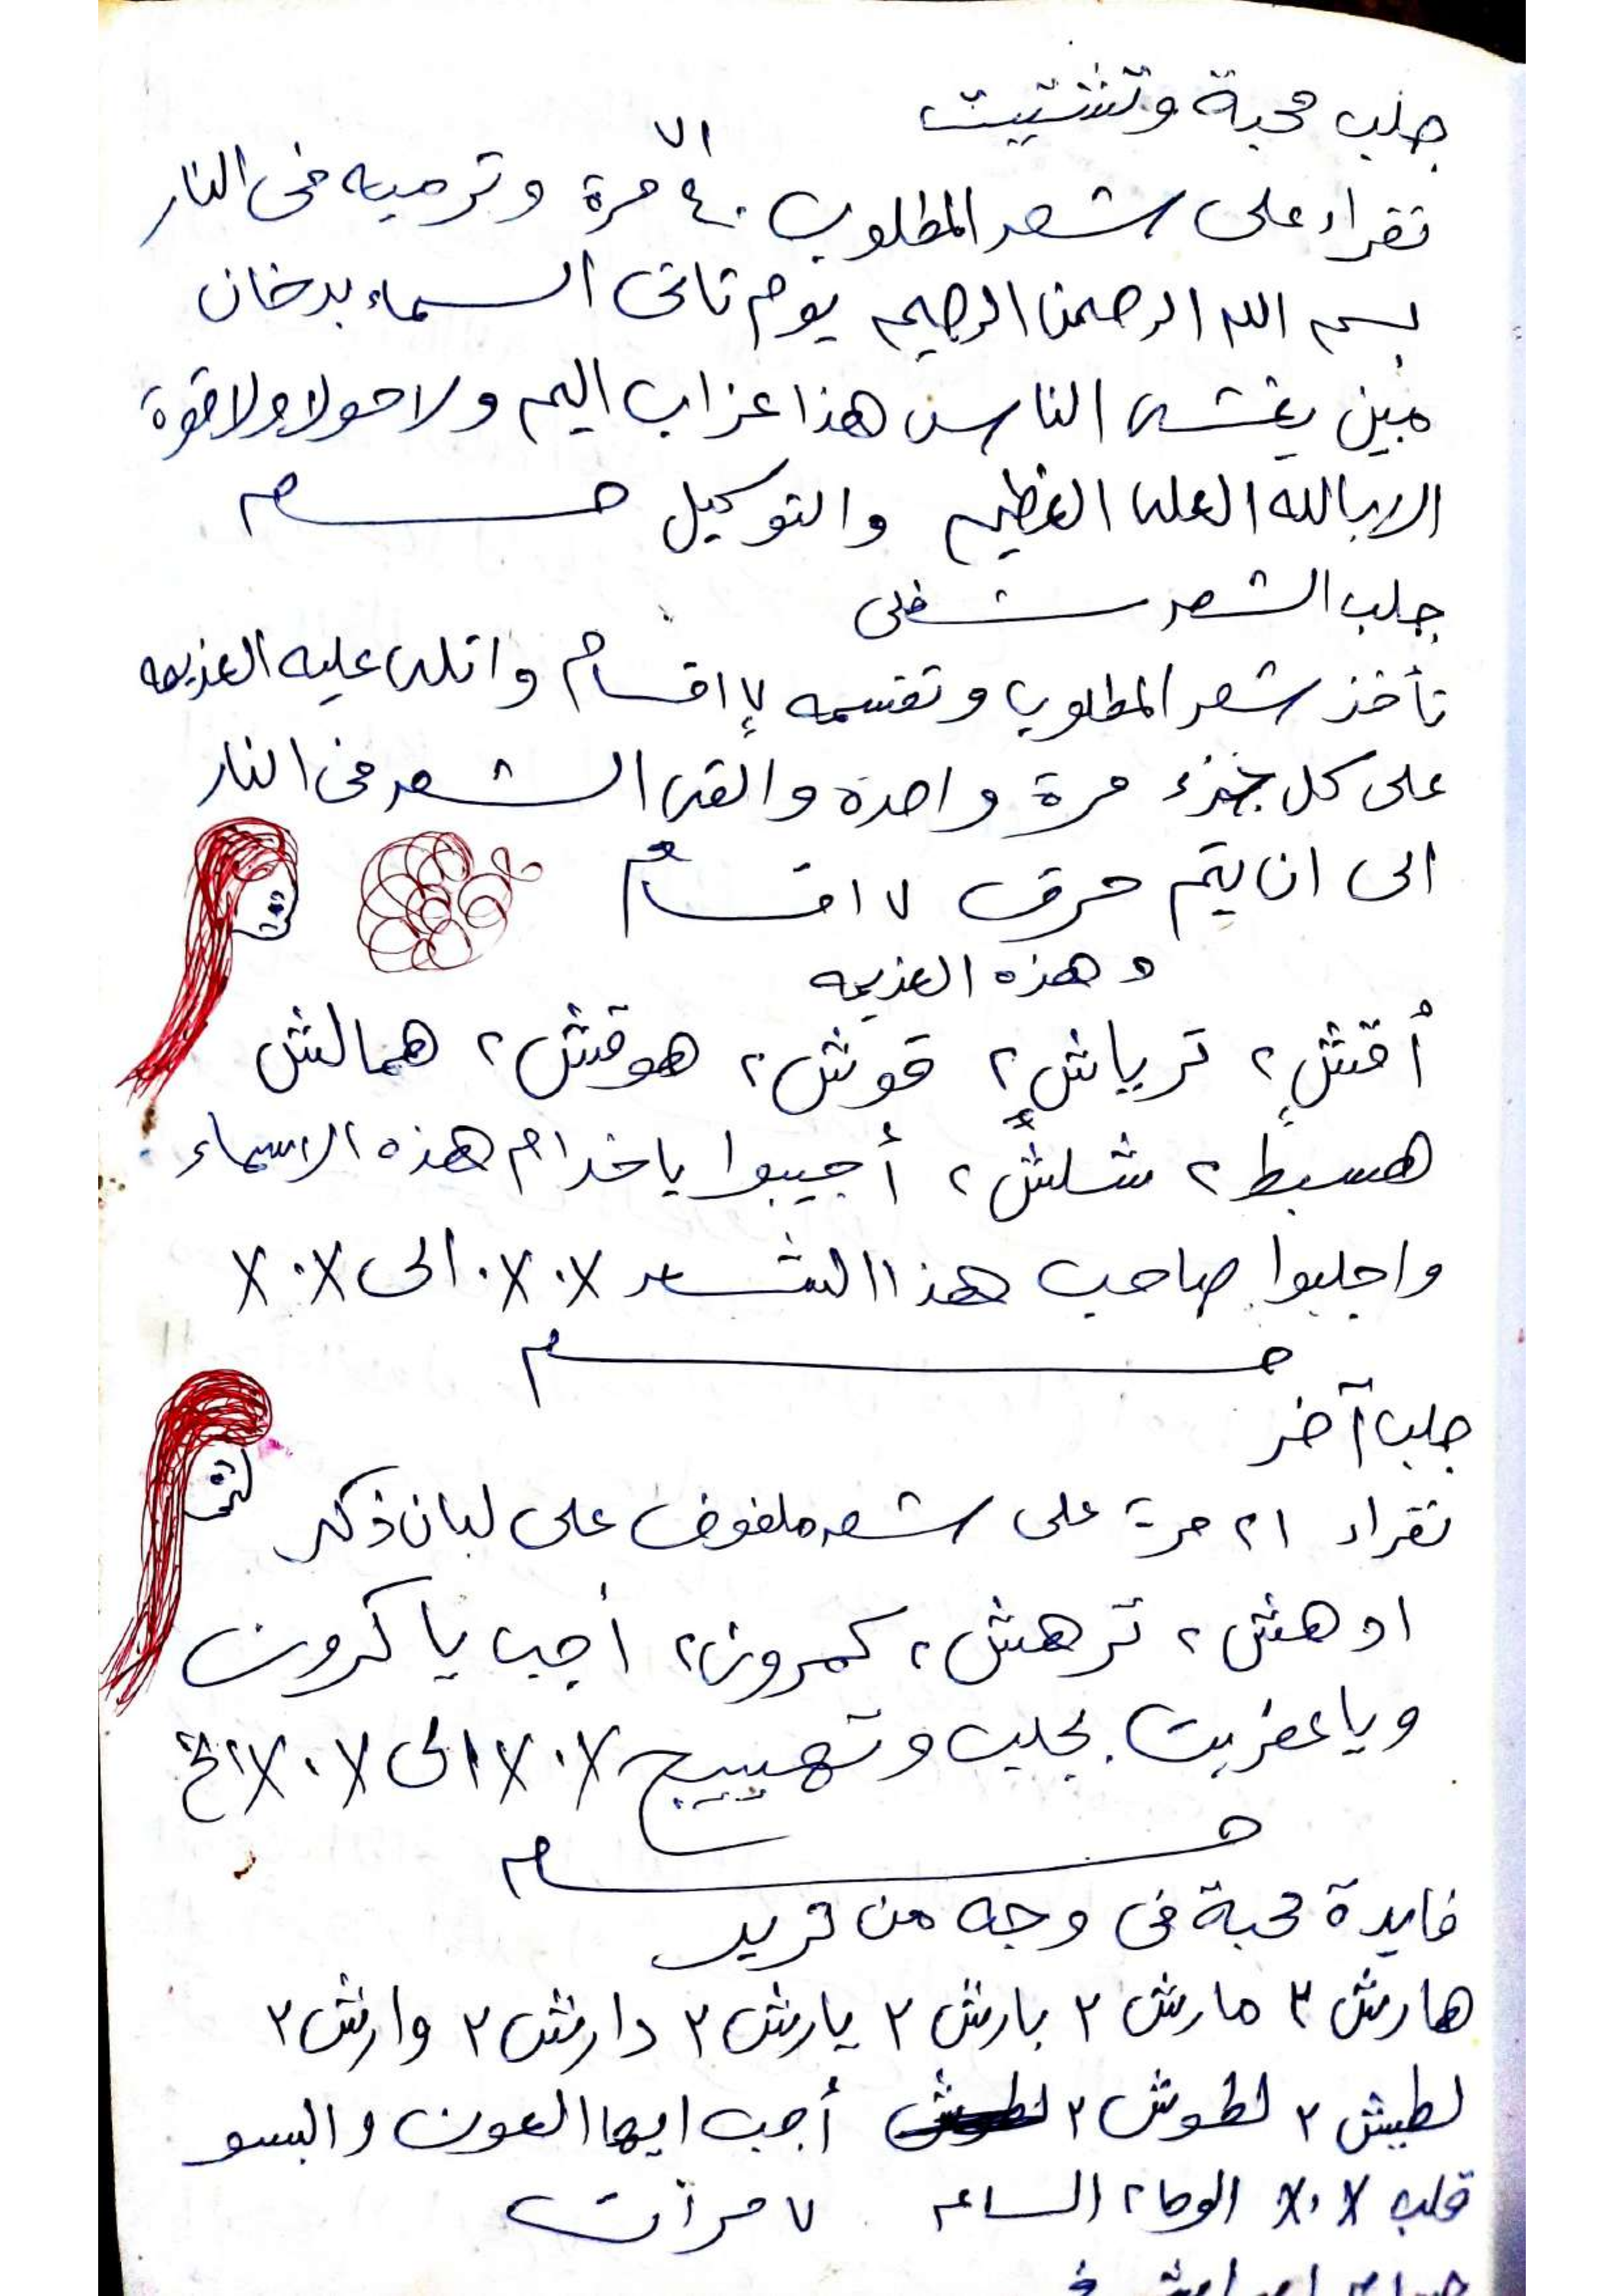 جلب محبة وتشتيت
٧١
تقراء على شعر المطلوب ٤٠ مرة وترميه فى النار
بسم الله الرحمن الرحيم يوم تاتى السماء بدخان
مبين يغشى الناس هذا عزاب اليم ولا حولا ولا قوة
الا بالله العلى العظيم والتوكيل
جلب الشعر سفلى
تأخذ شعر المطلوب وتقسمه ٧ اقسام واتلى عليه العزيمه
على كل جزء مرة واحدة والقى الشعر فى النار
الى ان يتم حرق ٧ اقسام
وهذه العزيمه
أقش ٢ ترياش ٢ قوش ٢ هوقش ٢ همالش
هسبط ٢ شلش ٢ أجيبوا ياخدام هذه الاسماء
واجلبوا صاحب هذا الشعر الى
جلب آخر
تقراء ٢١ مرة على شعر ملفوف على لبان ذكر
اوهش ٢ ترهش ٢ كمرون ٢ أجب يا كرون
ويا عفريت بجلب وتهييج الى الخ
فايدة محبة فى وجه من تريد
هارش ٢ مارش ٢ بارش ٢ يارش ٢ دارش ٢ وارش ٢
لطيش ٢ لطوش ٢ أجب ايها العون والبسو
قلب الوحا ٢ الساعه ٧ مرات